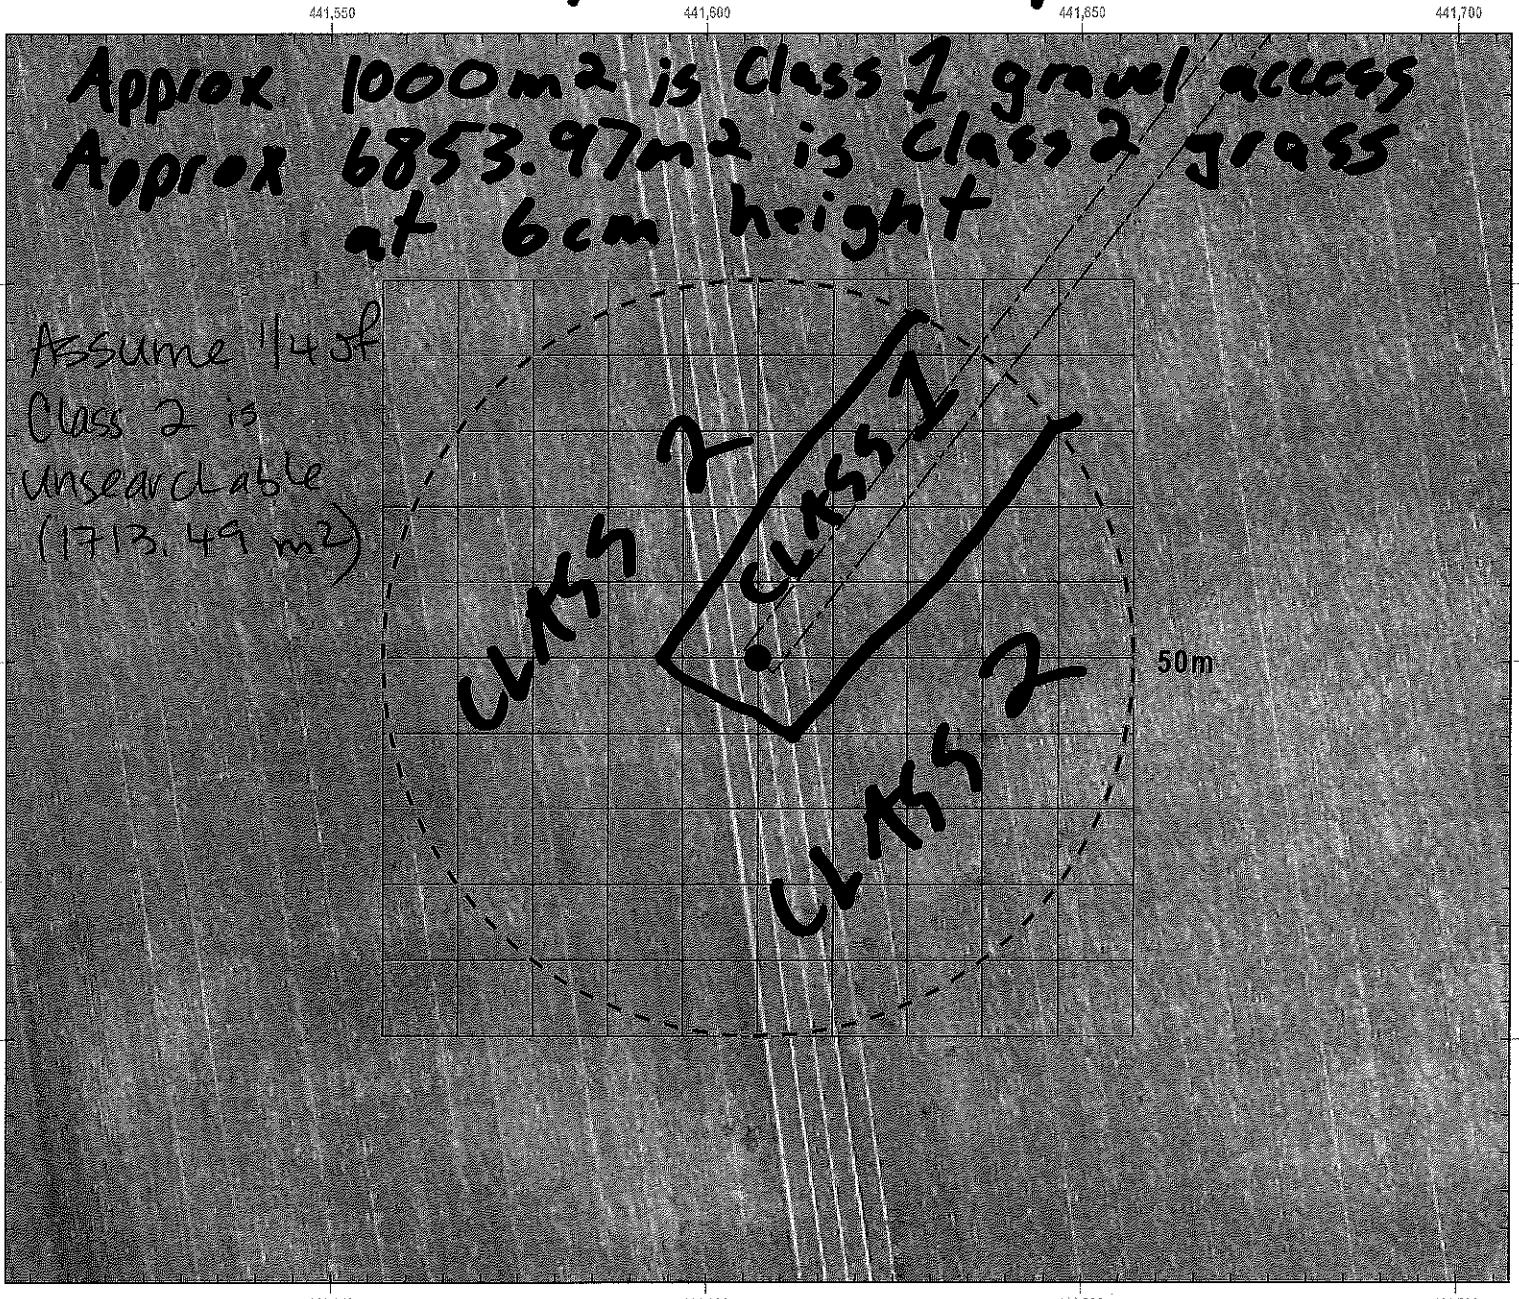 441,550 441,600 441,850 441,700
Approx 1000m2 is Class 1 gravel access
Approx 6853.97m2 is Class 2 grass
at 6cm height
Assume 1/4 of
Class 2 is
unsearchable
(1713.49 m2)
CLASS 1
CLASS 2
50m
CLASS 2